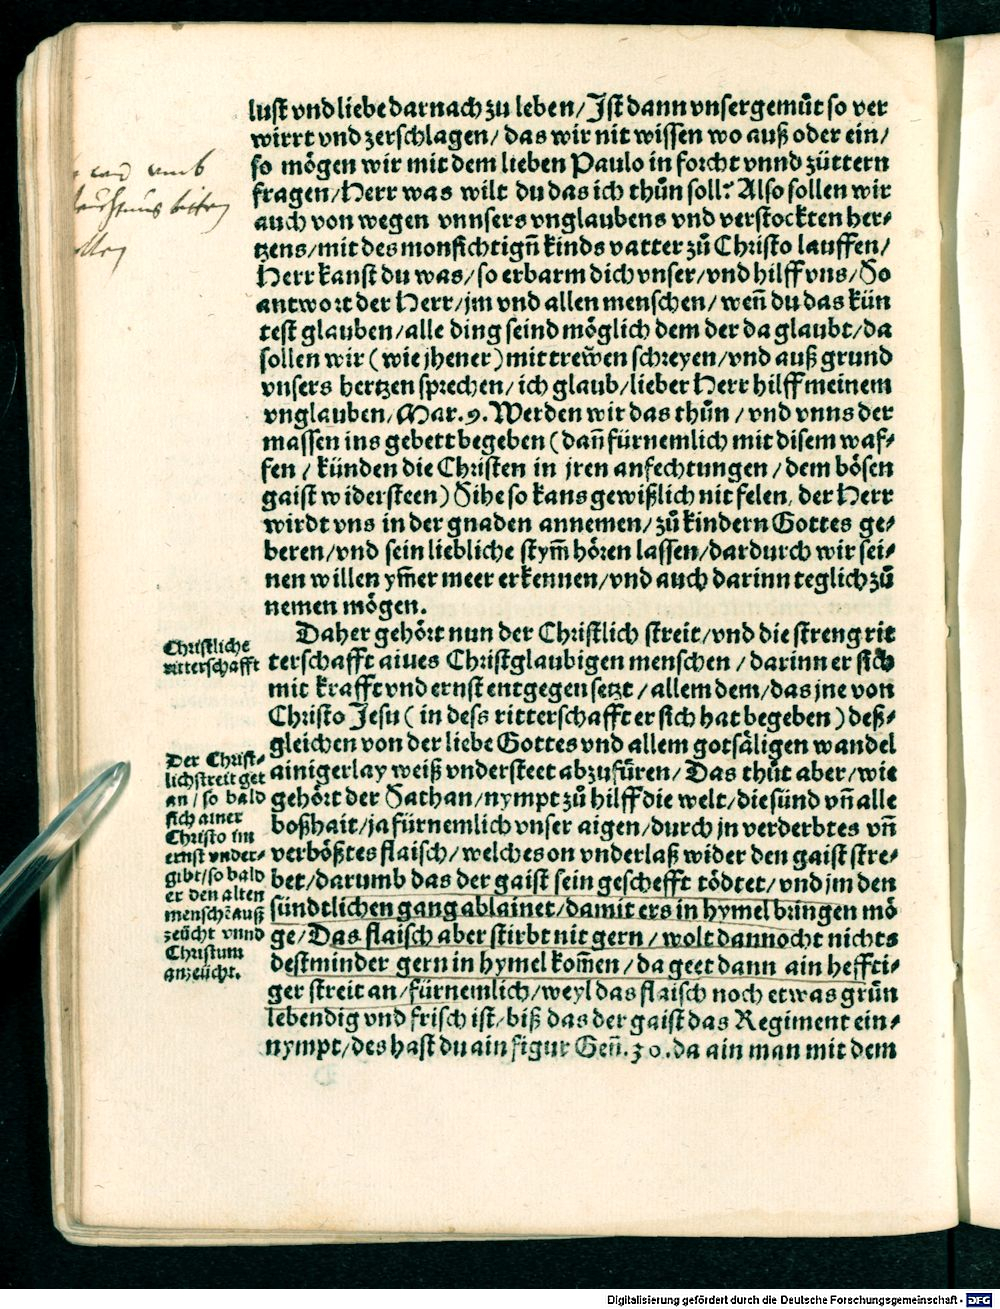 lust vnd liebe darnach zu leben/ Jst dann vnser gemüt so ver
wirrt vnd zerschlagen/ das wir nit wissen wo auß oder ein/
so mögen wir mit dem lieben Paulo in forcht vnnd züttern
fragen/ Herr was wilt du das ich thůn soll? Also sollen wir
auch von wegen vnnsers vnglaubens vnd verstockten her⸗
tzens/ mit des monsichtigñ kinds vatter zů Christo lauffen/
Herr kanst du was/ so erbarm dich vnser/ vnd hilff vns/ So
antwort der Herr/ jm vnd allen menschen/ weñ du das kün
test glauben/ alle ding seind möglich dem der da glaubt/ da
sollen wir (wie jhener) mit trewen schreyen/ vnd auß grund
vnsers hertzen sprechen/ ich glaub/ lieber Herr hilff meinem
vnglauben/ Mar. 9. Werden wir das thůn/ vnd vnns der
massen ins gebett begeben (dañ fürnemlich mit disem waf⸗
fen/ künden die Christen in jren anfechtungen/ dem bösen
gaist widersteen) Sihe so kans gewißlich nit felen, der Herr
wirdt vns in der gnaden annemen/ zů kindern Gottes ge⸗
beren/ vnd sein liebliche stym̃ hören lassen/ dardurch wir sei⸗
nen willen ym̃er meer erkennen/ vnd auch darinn teglich zů
nemen mögen.
Christliche
ritterschafft
Daher gehört nun der Christlich streit/ vnd die streng rit
terschafft aines Christglaubigen menschen/ darinn er sich
mit krafft vnd ernst entgegen setzt/ allem dem/ das jne von
Christo Jesu (in dess ritterschafft er sich hat begeben) deß⸗
gleichen von der liebe Gottes vnd allem gotsäligen wandel
ainigerlay weiß vndersteet abzufüren/ Das thůt aber/ wie
gehört der Sathan/ nympt zů hilff die welt/ die sünd vñ alle
boßhait/ ja fürnemlich vnser aigen/ durch jn verderbtes vñ
verbößtes flaisch/ welches on vnderlaß wider den gaist stre⸗
bet/ darumb das der gaist sein geschefft tödtet/ vnd jm den
sündtlichen gang ablainet/ damit ers in hymel bringen mö
ge/ Das flaisch aber stirbt nit gern/ wolt dannocht nichts
destminder gern in hymel kom̃en/ da geet dann ain heffti⸗
ger streit an/ fürnemlich/ weyl das flaisch noch etwas grün
lebendig vnd frisch ist/ biß das der gaist das Regiment ein⸗
nympt/ des hast du ain figur Geñ. 30. da ain man mit dem
Der Christ⸗
lich streit get
an/ so bald
sich ainer
Christo im
ernst vnder⸗
gibt/ so bald
er den alten
menschẽ auß
zeücht vnnd
Christum
anzeücht.
Digitalisierung gefördert durch die Deutsche Forschungsgemeinschaft - DFG